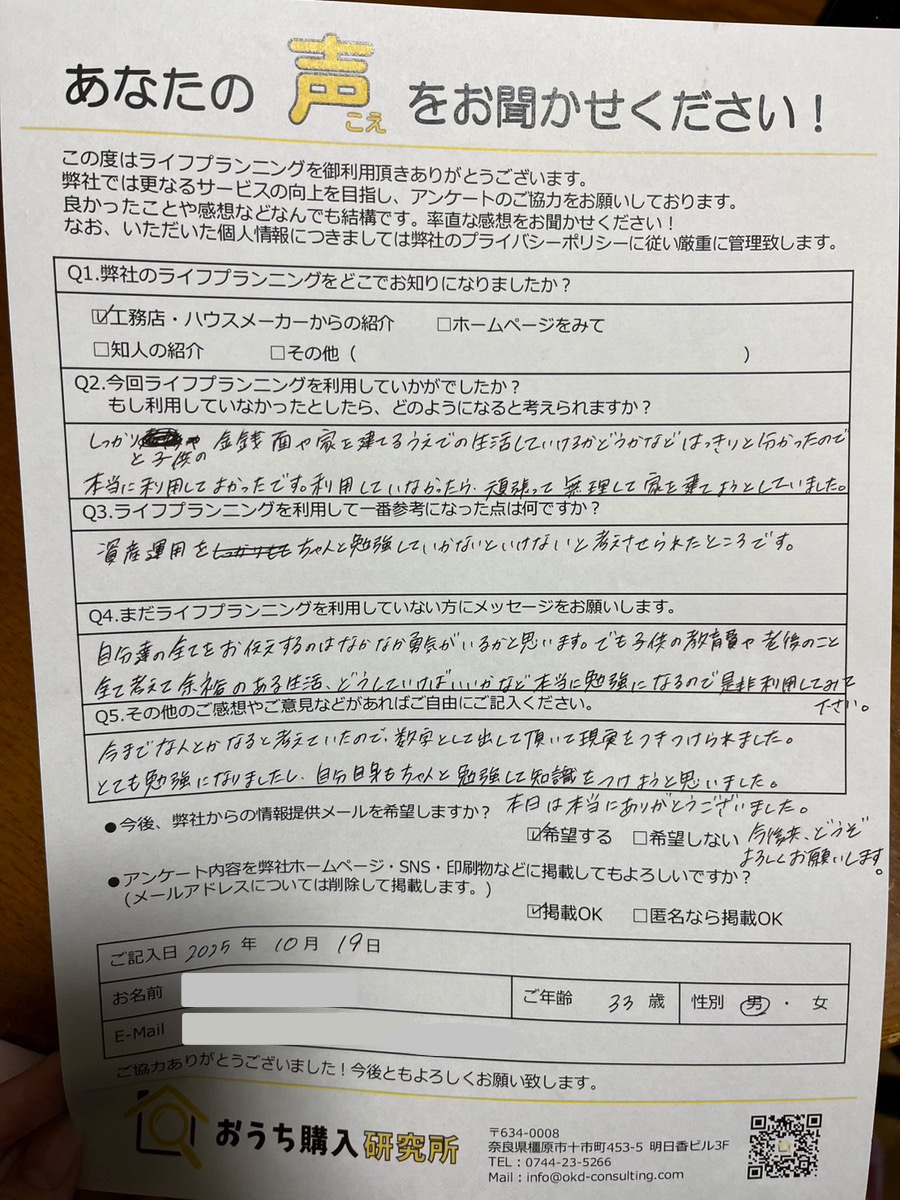 あなたの 声 をお聞かせください！
こえ
この度はライフプランニングを御利用頂きありがとうございます。
弊社では更なるサービスの向上を目指し、アンケートのご協力をお願いしております。
良かったことや感想などなんでも結構です。率直な感想をお聞かせください！
なお、いただいた個人情報につきましては弊社のプライバシーポリシーに従い厳重に管理致します。
Q1.弊社のライフプランニングをどこでお知りになりましたか？
☑工務店・ハウスメーカーからの紹介 □ホームページをみて
□知人の紹介 □その他（ ）
Q2.今回ライフプランニングを利用していかがでしたか？
もし利用していなかったとしたら、どのようになると考えられますか？
しっかりと子供の金銭面や家を建てるうえでの生活していけるかどうかなどはっきりと分かったので
本当に利用してよかったです。利用していなかったら、頑張って無理して家を建てようとしていました。
Q3.ライフプランニングを利用して一番参考になった点は何ですか？
資産運用をちゃんと勉強していかないといけないと考えさせられたところです。
Q4.まだライフプランニングを利用していない方にメッセージをお願いします。
自分達の全てをお伝えするのはなかなか勇気がいるかと思います。でも子供の教育費や老後のこと
全て考えて余裕のある生活、どうしていけばいいかなど本当に勉強になるので是非利用してみて
下さい。
Q5.その他のご感想やご意見などがあればご自由にご記入ください。
今までなんとかなると考えていたので、数字として出して頂いて現実をつきつけられました。
とても勉強になりましたし、自分自身もちゃんと勉強して知識をつけようと思いました。
本日は本当にありがとうございました。
今後共、どうぞ
よろしくお願いします。
●今後、弊社からの情報提供メールを希望しますか？
☑希望する □希望しない
●アンケート内容を弊社ホームページ・SNS・印刷物などに掲載してもよろしいですか？
(メールアドレスについては削除して掲載します。)
☑掲載OK □匿名なら掲載OK
ご記入日 2025年 10月 19日
お名前
ご年齢 33歳 性別 男・女
E-Mail
ご協力ありがとうございました！今後ともよろしくお願い致します。
おうち購入研究所
〒634-0008
奈良県橿原市十市町453-5 明日香ビル3F
TEL：0744-23-5266
Mail：info@okd-consulting.com